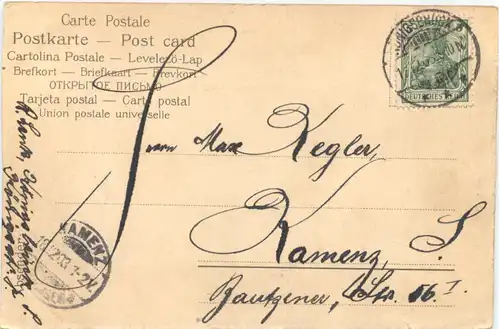 Carte Postale
Postkarte — Post card
Cartolina Postale — Levelező-Lap
Brefkort — Briefkaart — Brevkort
ОТКРЫТОЕ ПИСЬМО
Tarjeta postal — Carte postal
Union postale universelle
KÖNIGSBRÜCK
DEUTSCHES REICH
Max Kegler,
Kamenz, S.
Bautzener Str. 16 I
KAMENZ